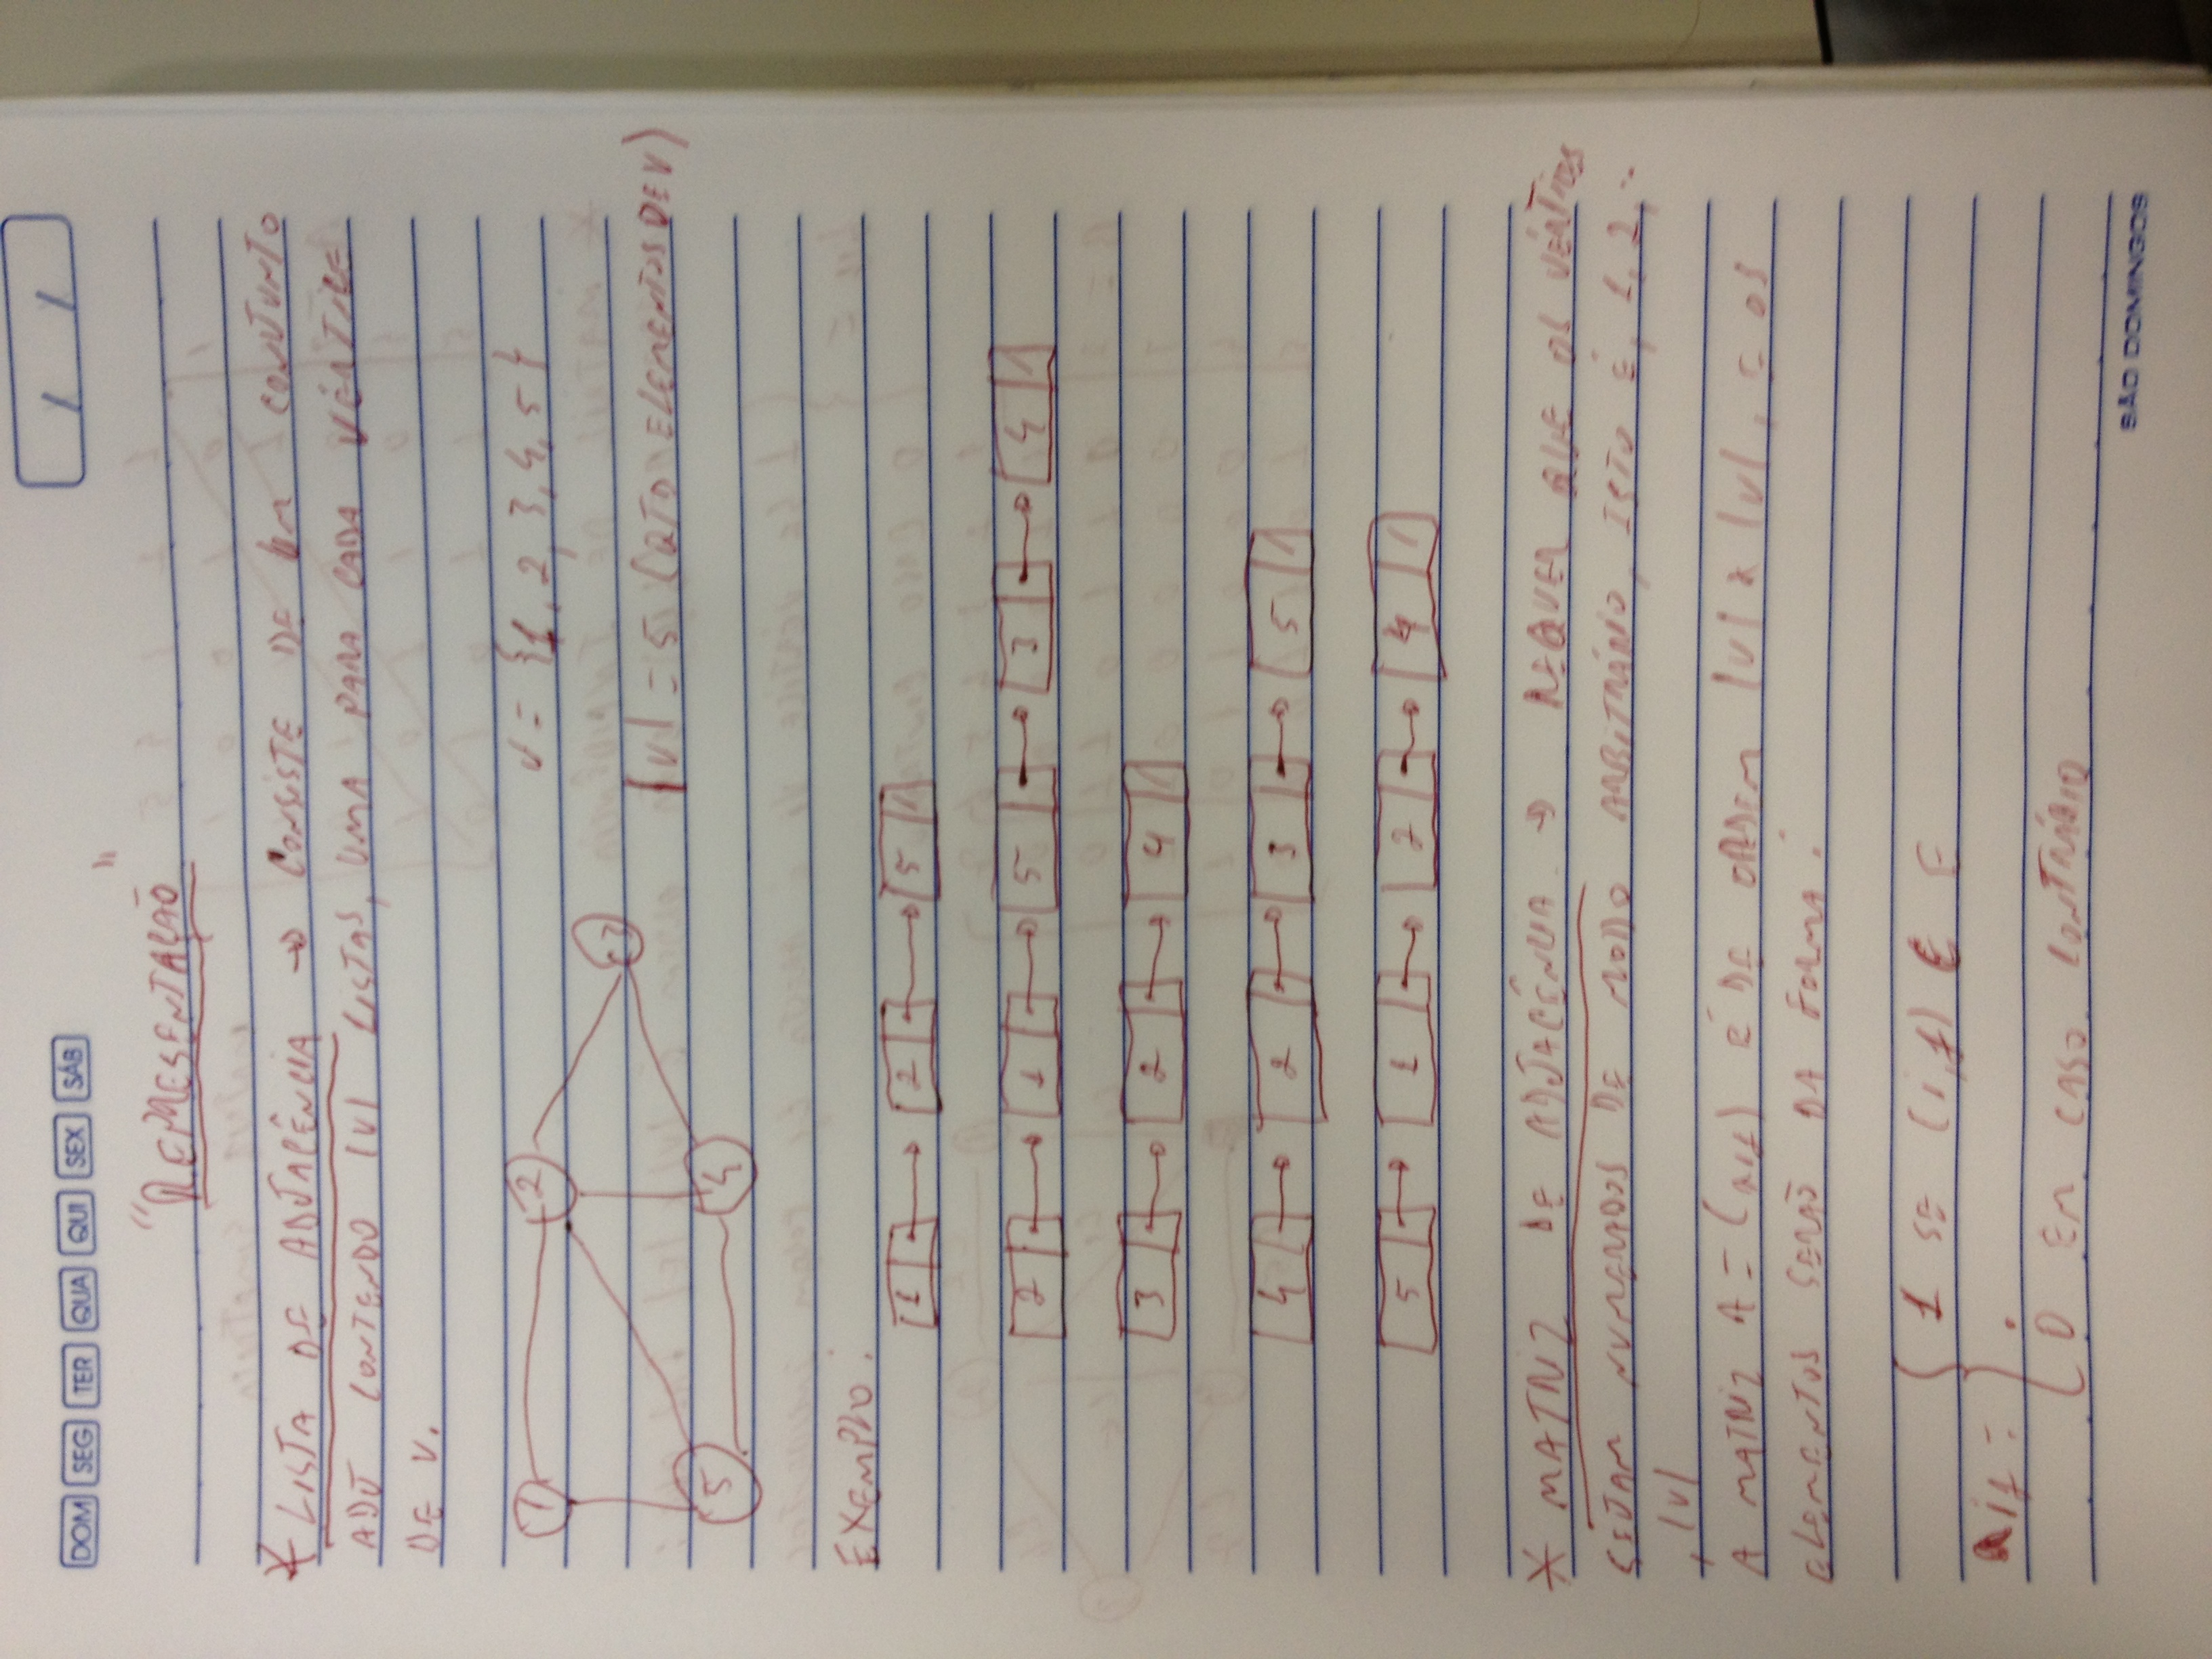 DOM SEG TER QUA QUI SEX SÁB / /
"REPRESENTAÇÃO"
* LISTA DE ADJACÊNCIA → CONSISTE DE UM CONJUNTO
ADJ CONTENDO |V| LISTAS, UMA PARA CADA VÉRTICE
DE V.
1 2 V = {1, 2, 3, 4, 5}
3
|V| = 5 (QTD ELEMENTOS DE V)
5 4
EXEMPLO:
1 → 2 → 5
2 → 1 → 5 → 3 → 4
3 → 2 → 4
4 → 2 → 3 → 5
5 → 1 → 2 → 4
* MATRIZ DE ADJACÊNCIA → REQUER QUE OS VÉRTICES
SEJAM NUMERADOS DE MODO ARBITRÁRIO, ISTO É, 1, 2, ..
, |V|
A MATRIZ A = (aij) É DE ORDEM |V| x |V|, E OS
ELEMENTOS SERÃO DA FORMA:
1 SE (i,j) ∈ E
aij =
0 EM CASO CONTRÁRIO
SÃO DOMINGOS